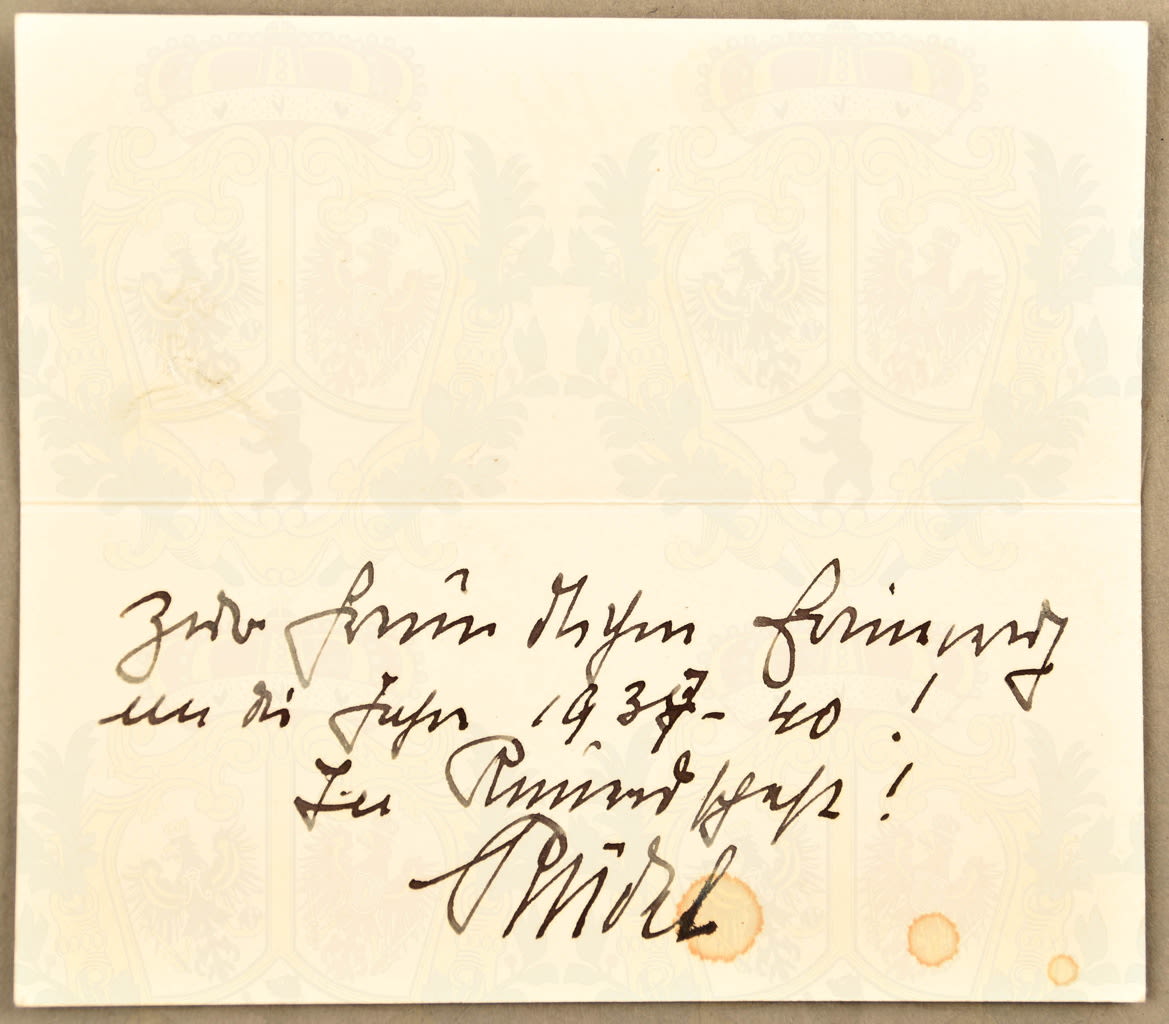 Zur freundlichen Erinnerung
an die Jahre 1937-40!
In Freundschaft!
Rüdel